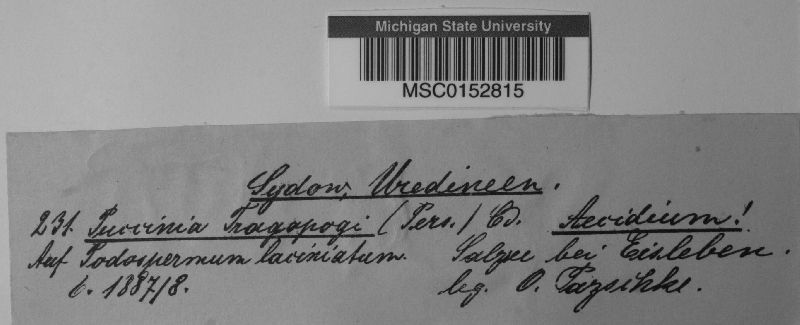 Michigan State University
MSC0152815
Sydow, Uredineen.
231. Puccinia Tragopogi (Pers.) Cd. Aecidium!
Auf Podospermum laciniatum. Salzsee bei Eisleben.
6. 1887/8. leg. O.